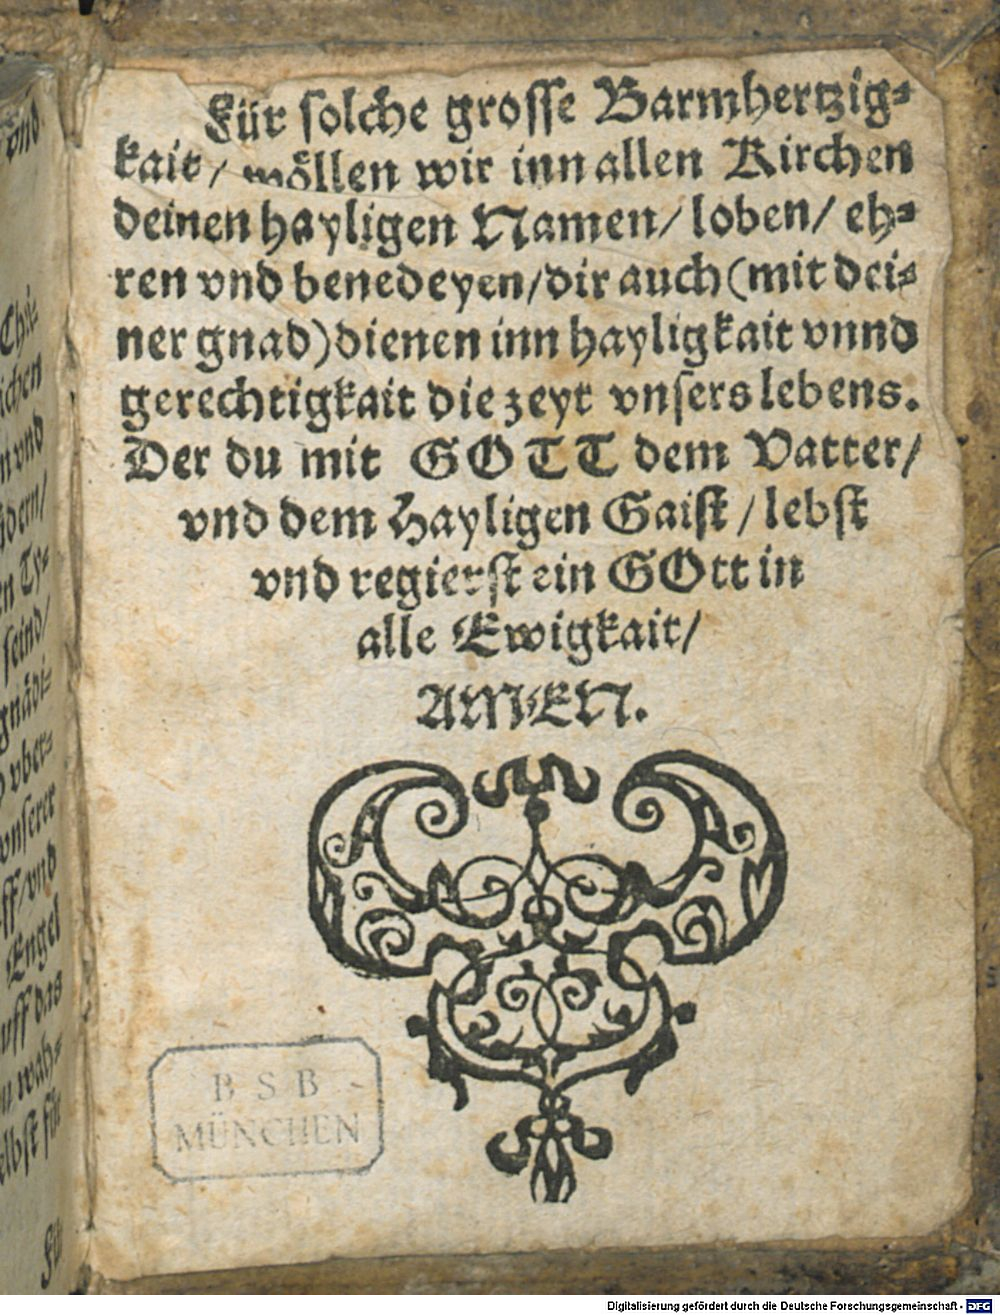 Für solche grosse Barmhertzig=
kait / wöllen wir inn allen Kirchen
deinen hayligen Namen / loben / eh=
ren vnd benedeyen / dir auch (mit dei=
ner gnad) dienen inn hayligkait vnnd
gerechtigkait die zeyt vnsers lebens.
Der du mit GOTT dem Vatter /
vnd dem Hayligen Gaist / lebst
vnd regierst ein GOtt in
alle Ewigkait /
AMEN.
B S B
MÜNCHEN
vnd
ichen
n vnd
dern /
seind /
gnädi=
vber=
vnserer
ff / vnd
Engel
uff das
wah=
elbst für
Für
Digitalisierung gefördert durch die Deutsche Forschungsgemeinschaft - DFG